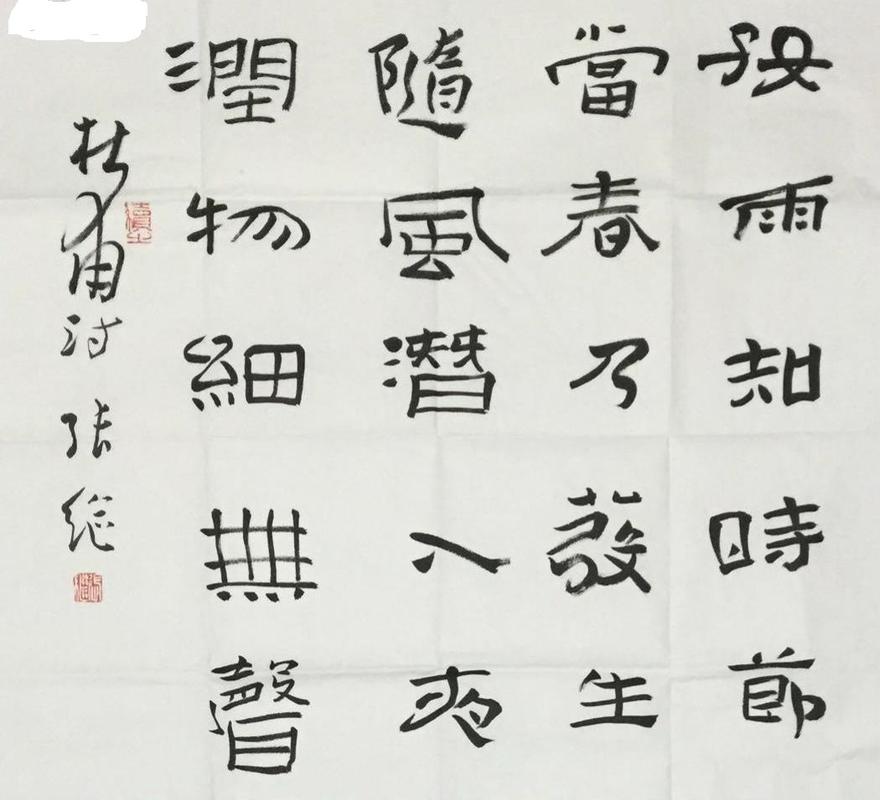 好雨知時節
當春乃發生
隨風潛入夜
潤物細無聲
杜甫诗 张